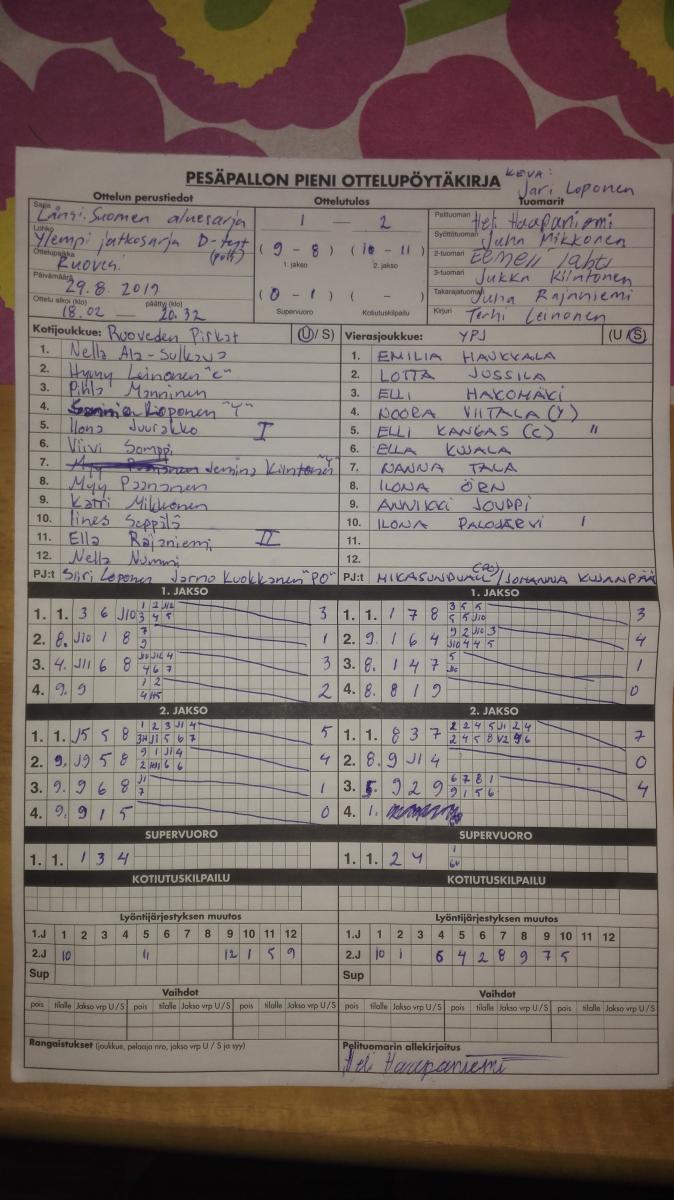 PESÄPALLON PIENI OTTELUPÖYTÄKIRJA
KEVA:
Jari Loponen
Ottelun perustiedot
Ottelutulos
Tuomarit
Sarja Länsi-Suomen aluesarja
Lohko Ylempi jatkosarja D-tyt (pois)
Ottelupaikka Ruovesi
Päivämäärä 29.8.2019
Ottelu alkoi (klo) päättyi (klo)
18.02 — 20.32
1 — 2
( 9 - 8 ) ( 10 - 11 )
1. jakso 2. jakso
( 0 - 1 ) ( - )
Supervuoro Kotiutuskilpailu
Pelituomari Heli Haapaniemi
Syöttötuomari Juha Mikkonen
2-tuomari Eemeli Lahti
3-tuomari Jukka Kiintonen
Takarajatuomari Juha Rajaniemi
Kirjuri Terhi Leinonen
Kotijoukkue: Ruoveden Pirkat (U/S)
1. Nella Ala-Sulkava
2. Hymy Leinonen "C"
3. Pihla Manninen
4. Loponen "Y"
5. Ilona Juurakko I
6. Viivi Somppi
7. Jemina Kiintonen
8. Myy Paananen
9. Katri Mikkonen
10. Iines Seppälä
11. Ella Rajaniemi II
12. Nella Nummi
PJ:t Siiri Loponen Jarno Kuokkanen "PO"
Vierasjoukkue: YPJ (U/S)
1. EMILIA HAUKKALA
2. LOTTA JUSSILA
3. ELLI HAKOMÄKI
4. NOORA VIITALA (Y)
5. ELLI KANGAS (C) "
6. ELLA KUJALA
7. NANNA TALA
8. ILONA ÖRN
9. ANNIKKI JOUPPI
10. ILONA PALOJÄRVI I
11.
12.
PJ:t MIKA SUNDVALL (PO) / JOHANNA KUJANPÄÄ
1. JAKSO
1. 1. 3 6 J10 3
2. 8. J10 1 8 1
3. 4. J11 6 8 3
4. 9. 9 2
1. JAKSO
1. 1. 1 7 8 3
2. 9. 1 6 4 4
3. 8. 1 4 7 1
4. 8. 8 1 9 0
2. JAKSO
1. 1. J5 5 8 5
2. 9. J9 5 8 4
3. 9. 9 6 8 1
4. 9. 9 1 5 0
2. JAKSO
1. 1. 8 3 7 7
2. 8. 9 J14 0
3. 5. 9 2 9 4
4. 1.
SUPERVUORO
1. 1. 1 3 4
SUPERVUORO
1. 1. 2 4
KOTIUTUSKILPAILU
KOTIUTUSKILPAILU
Lyöntijärjestyksen muutos
1.J 1 2 3 4 5 6 7 8 9 10 11 12
2.J 10 11 12 1 5 9
Sup
Lyöntijärjestyksen muutos
1.J 1 2 3 4 5 6 7 8 9 10 11 12
2.J 10 1 6 4 2 8 9 7 5
Sup
Vaihdot
pois tilalle Jakso vrp U/S pois tilalle Jakso vrp U/S pois tilalle Jakso vrp U/S
Vaihdot
pois tilalle Jakso vrp U/S pois tilalle Jakso vrp U/S pois tilalle Jakso vrp U/S
Rangaistukset (joukkue, pelaaja nro, jakso vrp U/S ja syy)
Pelituomarin allekirjoitus
Heli Haapaniemi